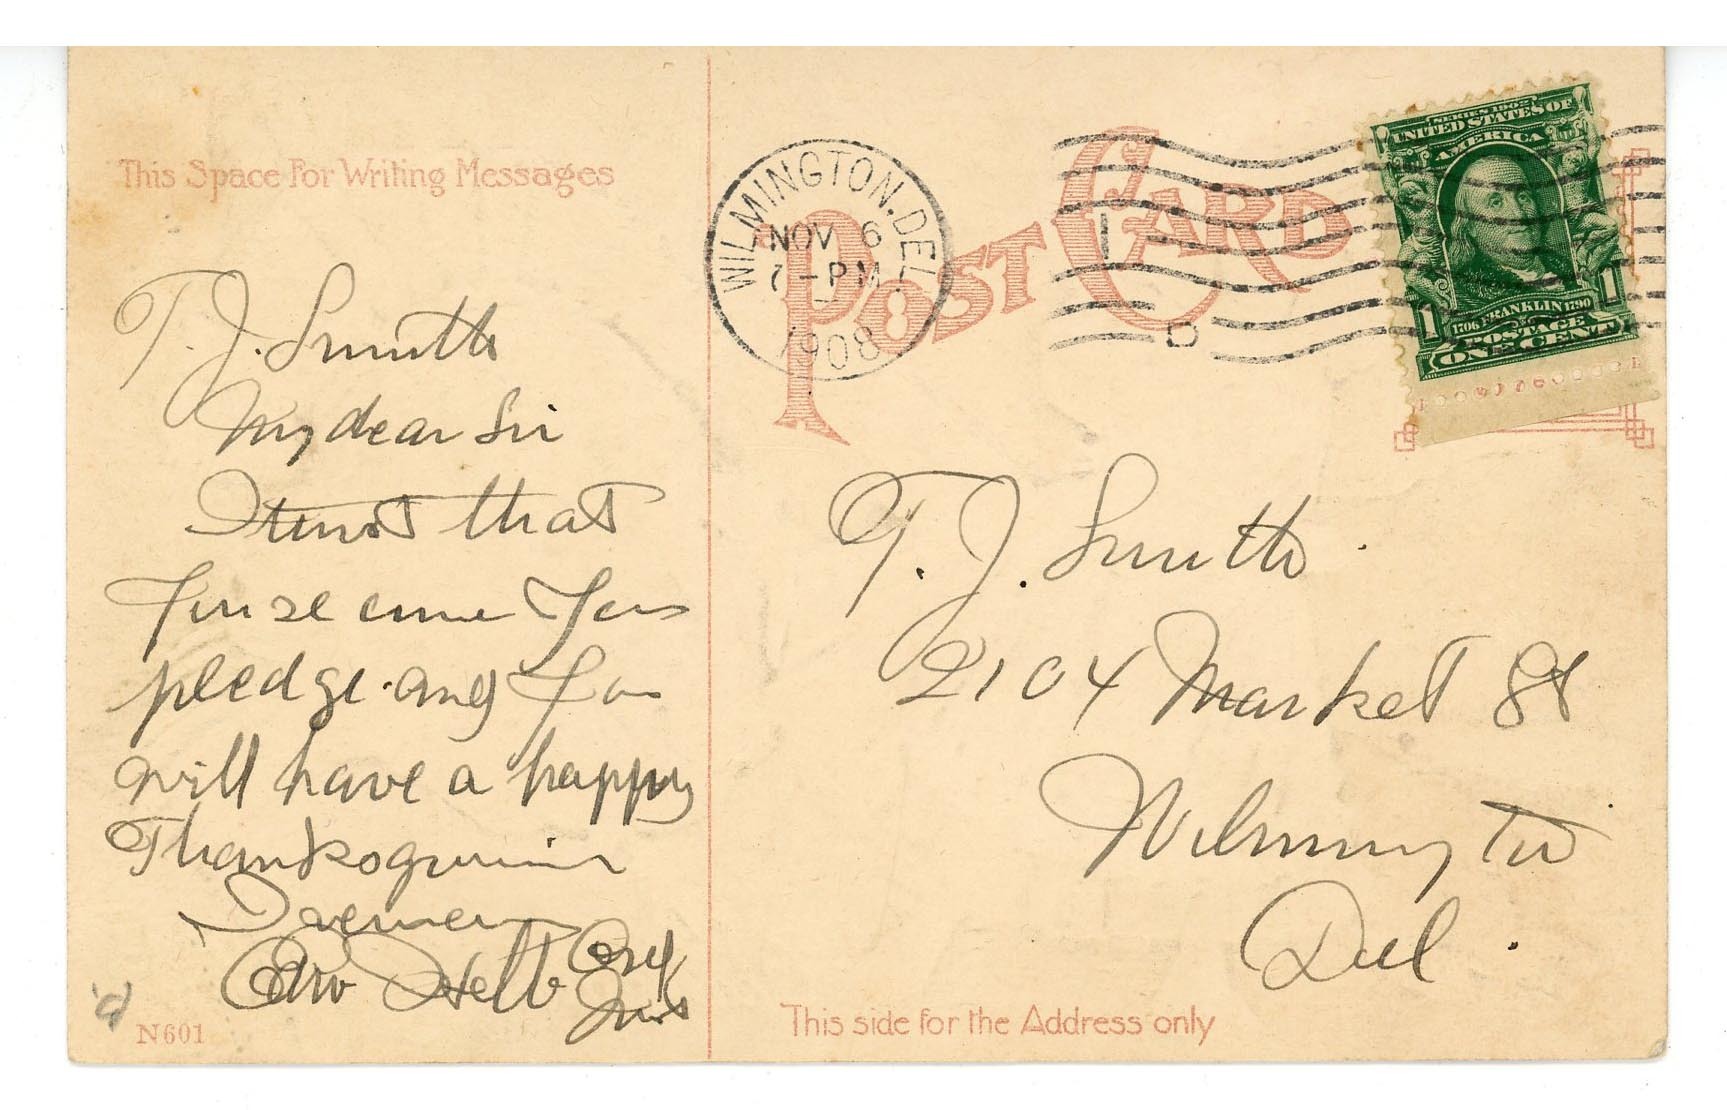 This Space For Writing Messages
T. J. Smith
My dear Sir
I trust that
you se cure your
pledge. and you
will have a happy
Thanksgiving
Edw Helb
N601
WILMINGTON. DEL.
NOV 6
7-PM
1908
POST CARD
1
D
SERIES 1902
UNITED STATES OF
AMERICA
FRANKLIN
1706 1790
1 POSTAGE 1
ONE CENT
T. J. Smith
2104 Market St
Wilmington
Del.
This side for the Address only